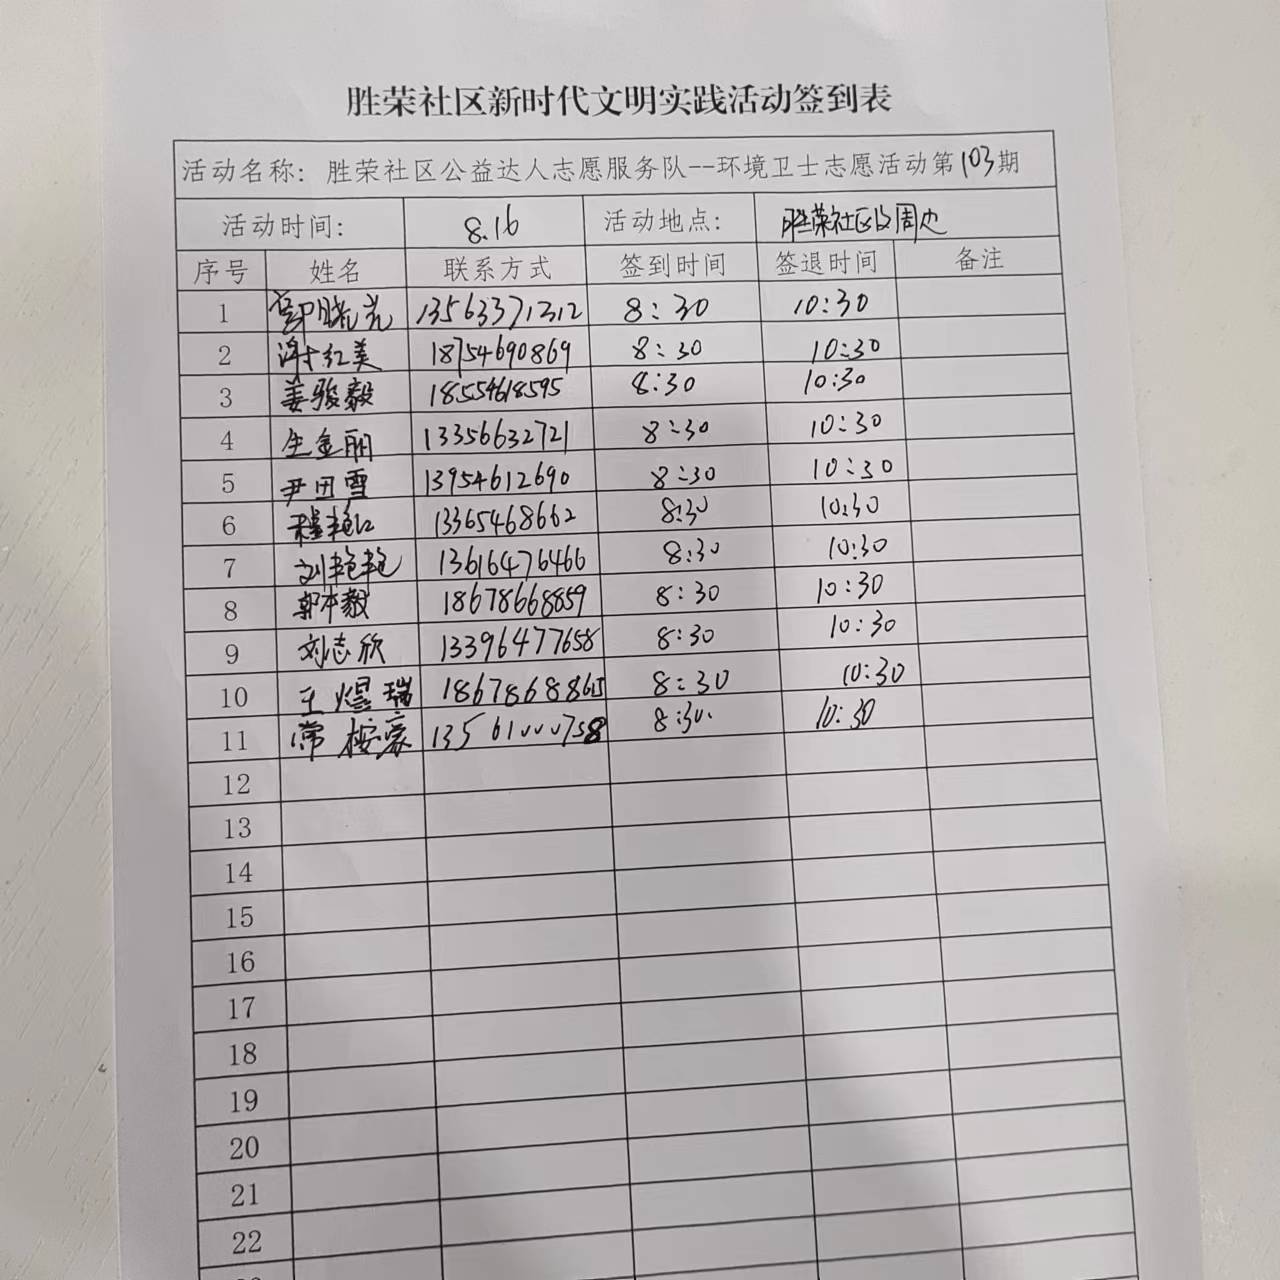 胜荣社区新时代文明实践活动签到表
活动名称：胜荣社区公益达人志愿服务队--环境卫士志愿活动第103期
活动时间： 8.16 活动地点： 胜荣社区及周边
序号 姓名 联系方式 签到时间 签退时间 备注
1 13563371312 8:30 10:30
2 谢红美 18754690869 8:30 10:30
3 姜骏毅 18554618595 8:30 10:30
4 生金丽 13356632721 8:30 10:30
5 尹田雪 13954612690 8:30 10:30
6 13365468662 8:30 10:30
7 刘艳艳 13616476466 8:30 10:30
8 郭本毅 18678668859 8:30 10:30
9 刘志欣 13396477658 8:30 10:30
10 王煜瑞 8:30 10:30
11 常桉豪 13561000758 8:30. 10:30
12
13
14
15
16
17
18
19
20
21
22